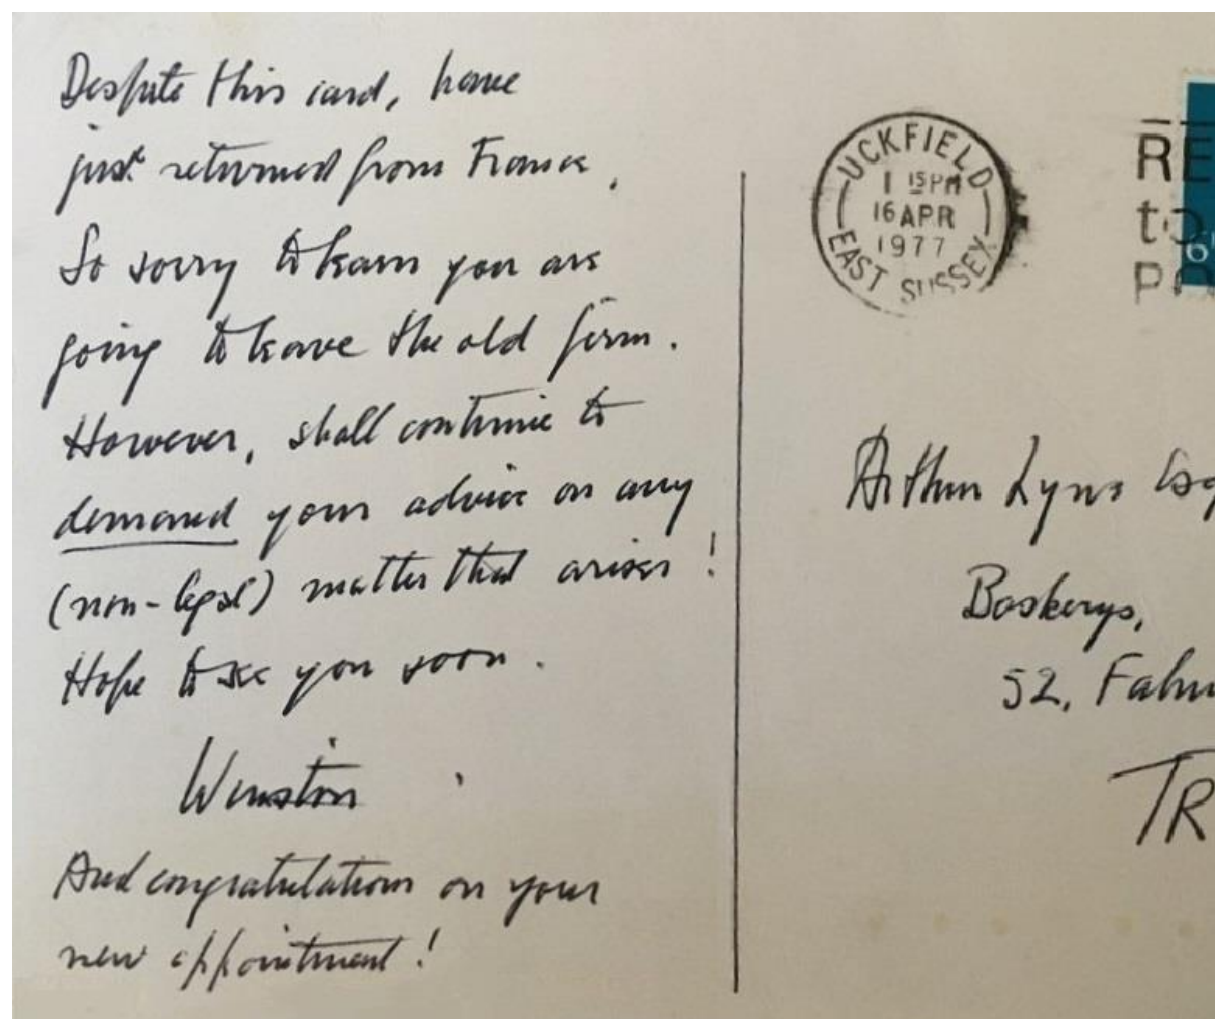 Despite this card, have
just returned from France.
So sorry to learn you are
going to leave the old firm.
However, shall continue to
demand your advice on any
(non-legal) matter that arises!
Hope to see you soon.
Winston
And congratulations on your
new appointment!
UCKFIELD
1 15 PM
16 APR
1977
EAST SUSSEX
RE
to
PO
6
Arthur Lyns Esq
52, Falm
TR